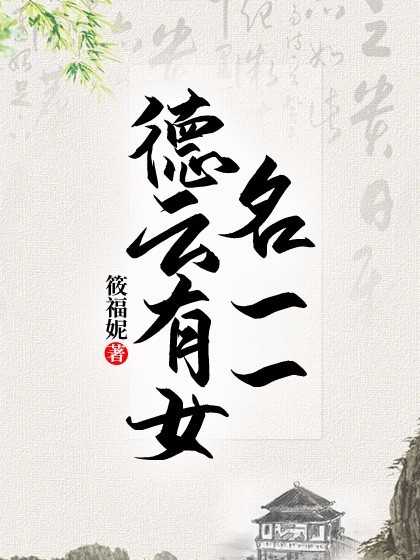 德云有女
名一一
筱福妮 著